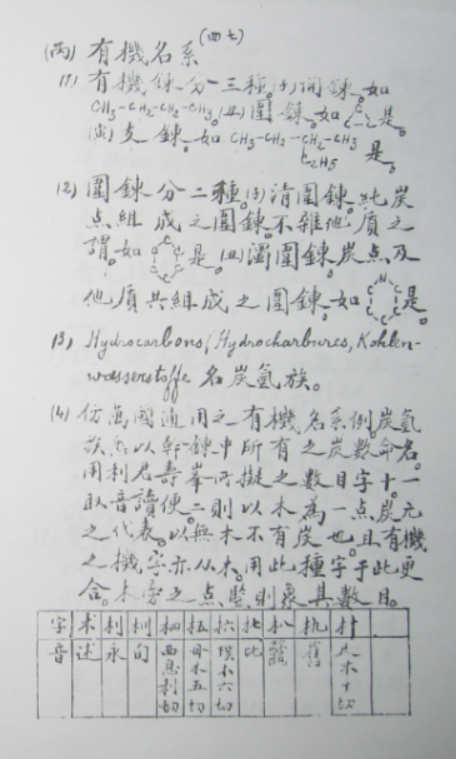 (四七)
(丙) 有機名系
(1) 有機鍊分一三種。(子)開鍊。如
CH3-CH2-CH2-CH3。(丑)圍鍊。如 C C-C 是。
(寅)支鍊。如 CH3-CH2-CH2-CH3
C2H5 是。
(2) 圍鍊分二種。(子)清圍鍊。純炭
点組成之圍鍊。不雜他质之
謂。如 C C C C C C 是。(丑)濁圍鍊。炭点及
他质共組成之圍鍊。如 N C C C C C 是。
(3) Hydrocarbons, Hydrocarbures, Kohlen-
wasserstoffe 名炭氫族。
(4) 仿萬國通用之有機名系例。炭氫
族 以幹鍊中所有之炭數命名。
用利君壽峯所擬之數目字十。一
取音讀便。二則以木為一点炭元
之代表。以無木不有炭也。且有機
之機字亦从木。用此種字于此更
合。木旁之点 則象其數目。
字 术
音 述 永 的 西息利切 五切 六切 比 舊 木十切